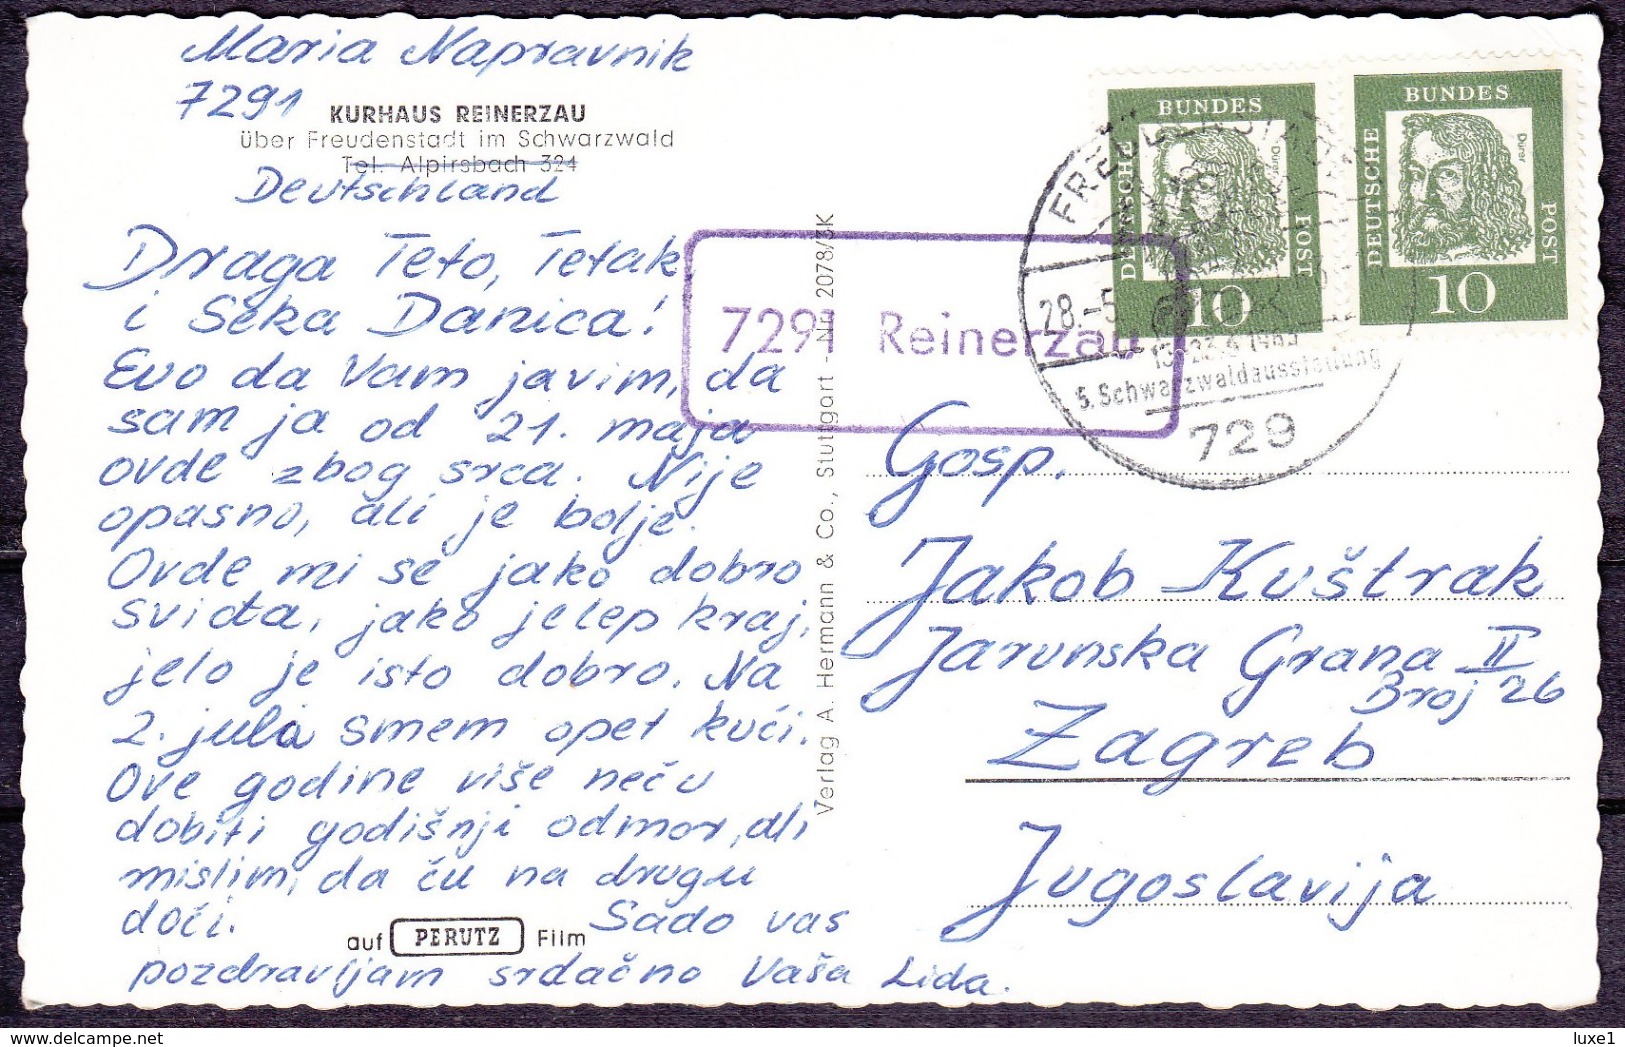 Maria Napravnik
7291
KURHAUS REINERZAU
über Freudenstadt im Schwarzwald
Tel. Alpirsbach 324
Deutschland
Draga Teto, Tetak
i Seka Danica!
Evo da Vam javim, da
sam ja od 21. maja
ovde zbog srca. Nije
opasno, ali je bolje.
Ovde mi se jako dobro
sviđa, jako je lep kraj,
jelo je isto dobro. Na
2. jula smem opet kući.
Ove godine više neću
dobiti godišnji odmor, ali
mislim, da ću na drugu
doći. Sado vas
auf PERUTZ Film
pozdravljam srdačno Vaša Lida.
Verlag A. Hermann & Co., Stuttgart - Nr. 2078/3K
7291 Reinerzau
BUNDES
DEUTSCHE
POST
Dürer
10
BUNDES
DEUTSCHE
POST
Dürer
10
FREUDENSTADT
28.-5.
5. Schwarzwaldausstellung
729
Gosp.
Jakob Kuštrak
Jarunska Grana II
Broj 26
Zagreb
Jugoslavija
luxe1